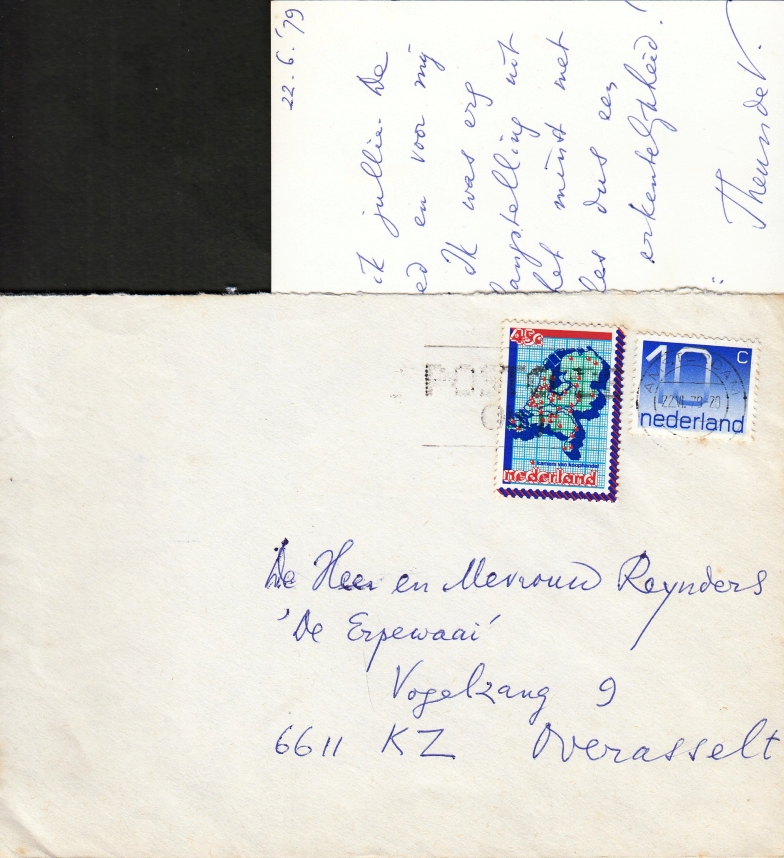 22.6.'79
ik jullie. De
ed en voor mij
Ik was erg
langstelling uit
het minst met
les dus een
erkentelijkheid!
Theun de V.
45c
nederland
10 c
nederland
POSTCODE
22.VI.79-20
De Heer en Mevrouw Reynders
'De Erpewaai'
Vogelzang 9
6611 KZ Overasselt